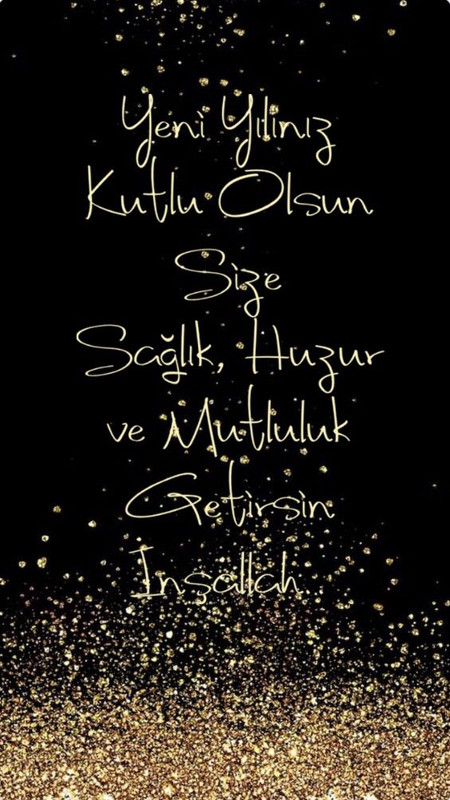 Yeni Yılınız
Kutlu Olsun
Size
Sağlık, Huzur
ve Mutluluk
Getirsin
İnşallah